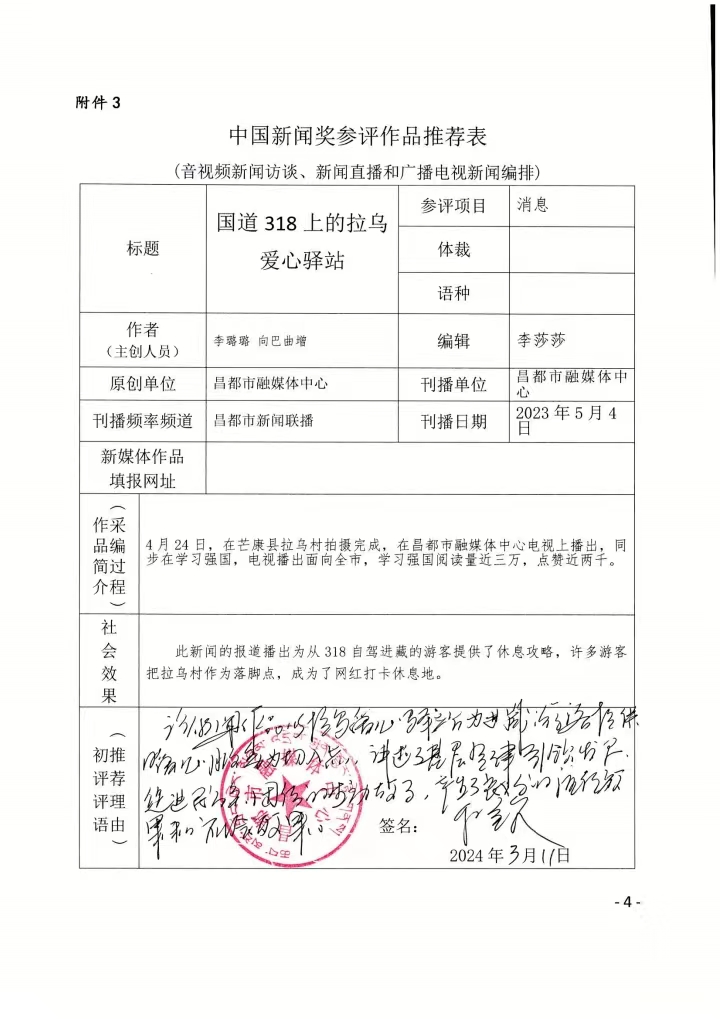 附件 3
中国新闻奖参评作品推荐表
(音视频新闻访谈、新闻直播和广播电视新闻编排)
标题
国道 318 上的拉乌
爱心驿站
参评项目
消息
体裁
语种
作者
（主创人员）
李璐璐 向巴曲增
编辑
李莎莎
原创单位
昌都市融媒体中心
刊播单位
昌都市融媒体中
心
刊播频率频道
昌都市新闻联播
刊播日期
2023 年 5 月 4
日
新媒体作品
填报网址
作品简介
（采编过程）
4 月 24 日，在芒康县拉乌村拍摄完成，在昌都市融媒体中心电视上播出，同
步在学习强国，电视播出面向全市，学习强国阅读量近三万，点赞近两千。
社会效果
此新闻的报道播出为从 318 自驾进藏的游客提供了休息攻略，许多游客
把拉乌村作为落脚点，成为了网红打卡休息地。
初评评语
（推荐理由）
该新闻作品以拉乌爱心驿站为进藏游客提供
为切入点，讲述了基层
促进民族团结的生动故事，产生了良好的
果和社会效果。
签名：
2024 年 3 月 11 日
- 4 -